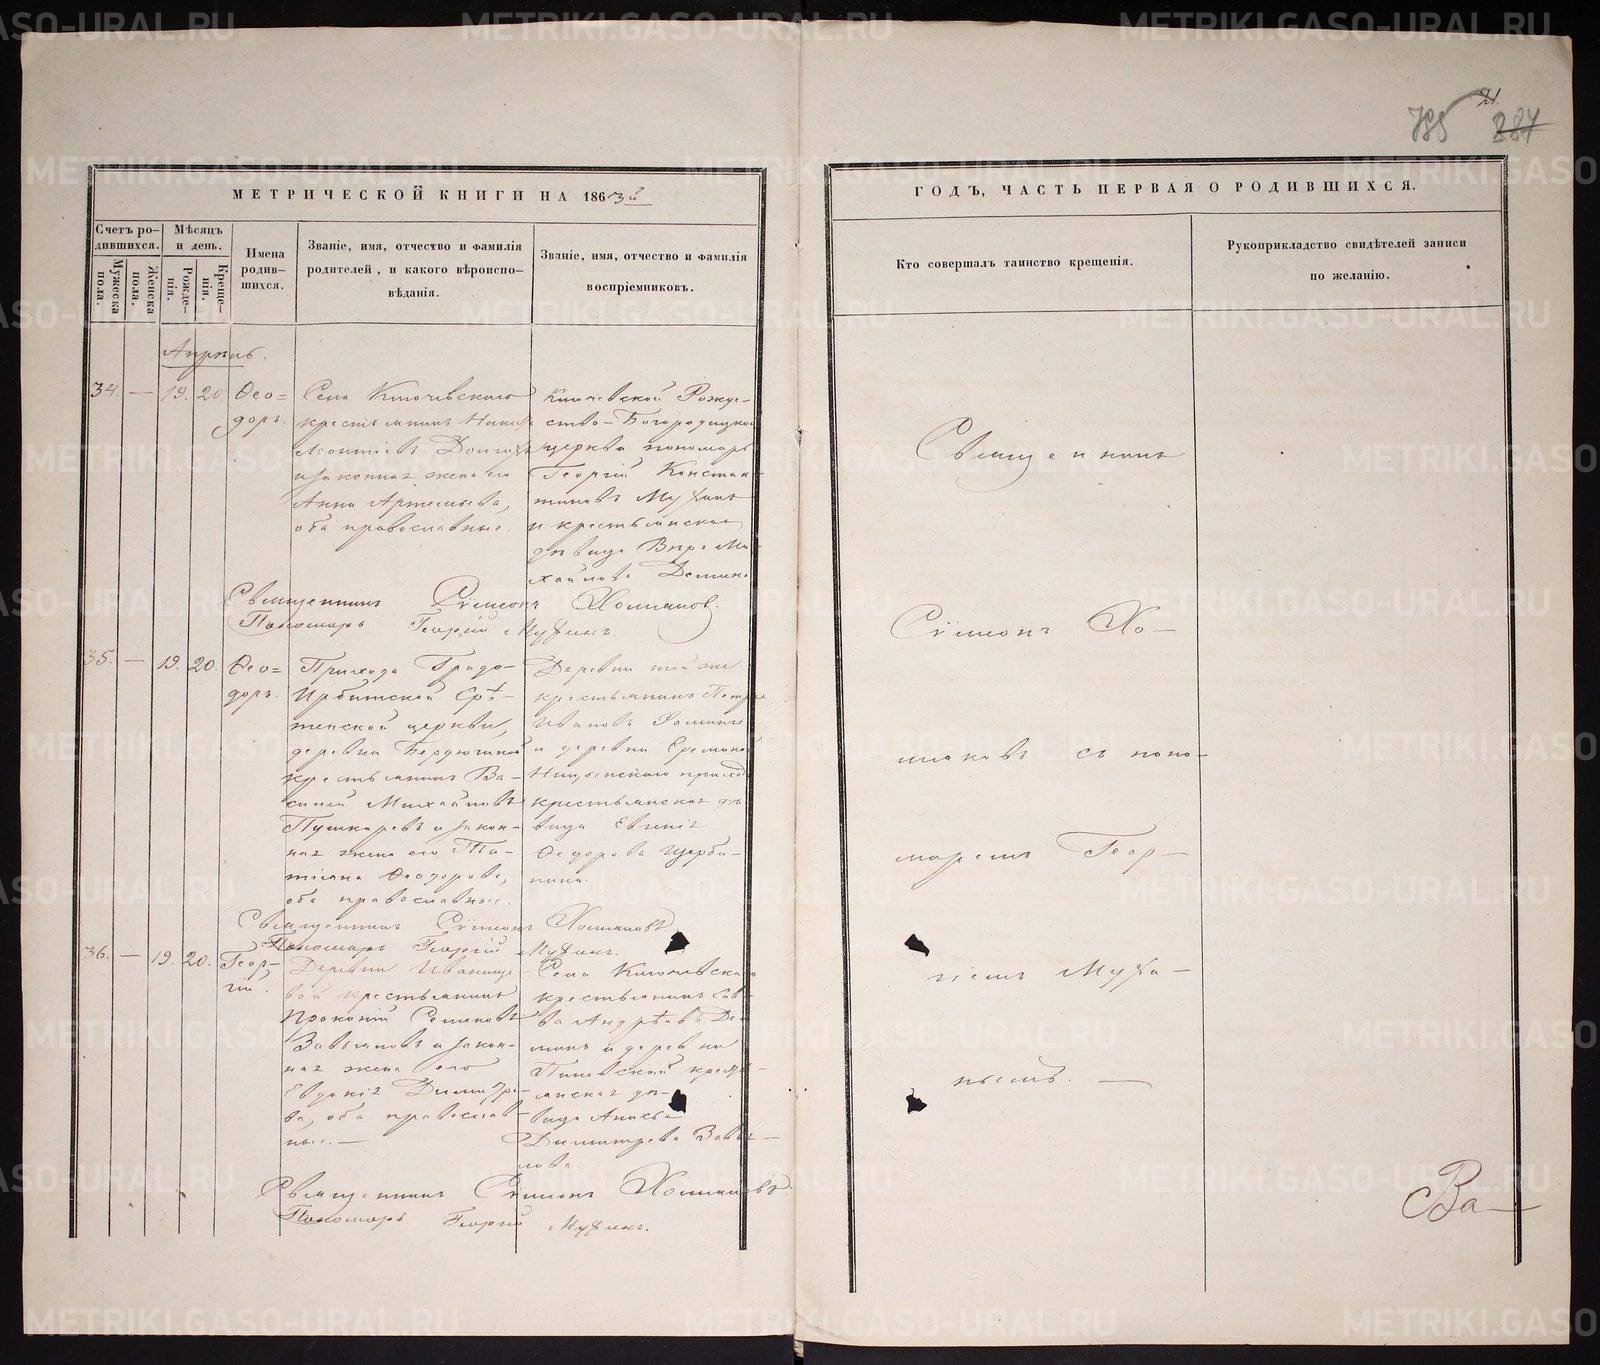 21.
785 887
МЕТРИЧЕСКОЙ КНИГИ НА 1863й
Счетъ ро-
дившихся.
Мужеска
пола.
Женска
пола.
Мѣсяцъ
и день.
Рожде-
нія.
Креще-
нія.
Имена
родив-
шихся.
Званіе, имя, отчество и фамилія
родителей, и какого вѣроиспо-
вѣданія.
Званіе, имя, отчество и фамилія
воспріемниковъ.
Апрѣль.
34. — 19. 20. Ѳео=
доръ.
Села Ключевскаго
крестьянинъ
Леонтіевъ
и законная жена его
Анна Артемьева,
оба православные.
Ключевской Рожде-
ство-Богородицкой
церкви пономарь
Георгій Констан-
тиновъ Мухинъ
и крестьянская
дѣвица Вѣра Ми-
хайлова Демина
Священникъ Сѵмеонъ Холмаков.
Пономарь Георгій Мухинъ.
35. — 19. 20. Ѳео=
доръ.
Прихода Градо-
Ирбитской Срѣ-
тенской церкви,
деревни Бердюгиной
крестьянинъ Ва-
силій Михайловъ
Пушкаревъ и закон-
ная жена его Та-
тіана Ѳеодорова,
оба православные.
Деревни той же
крестьянинъ Петръ
Ивановъ Фоминъ
и деревни Ереминой
Ницынскаго прихода
крестьянская дѣ-
вица Евгенія
Ѳедорова Щерба-
нина.
Священникъ Сѵмеонъ Холмаковъ.
Пономарь Георгій Мухинъ.
36. — 19. 20. Геор-
гій.
Деревни
вой крестьянинъ
Прокопій Семеновъ
Завьяловъ и закон-
ная жена его
Евдокія Димитріе-
ва, оба православ-
ные.—
Села Ключевскаго
крестьянинъ Сав-
ва Андрѣевъ Де-
минъ и деревни
крестья-
янская дѣ-
вица Анисья
Димитрева Завья-
лова.
Священникъ Сѵмеонъ Холмаковъ.
Пономарь Георгій Мухинъ.
ГОДЪ, ЧАСТЬ ПЕРВАЯ О РОДИВШИХСЯ.
Кто совершалъ таинство крещенія.
Рукоприкладство свидѣтелей записи
по желанію.
Священникъ
Сѵмеонъ Хо-
лмаковъ съ поно-
маремъ Геор-
гіемъ Муха-
нымъ. —
Ва—